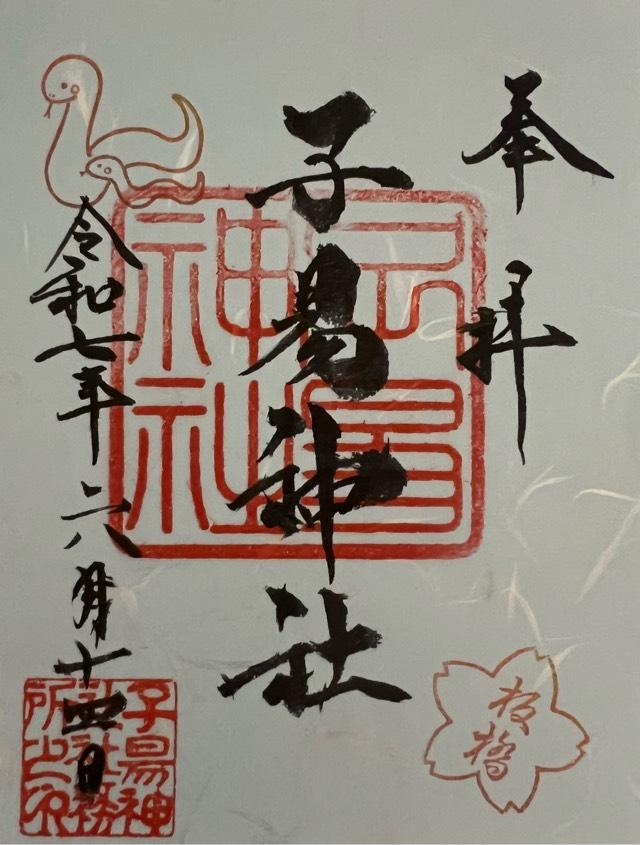 奉拝
子易神社
令和七年六月十四日
子易
神社
子易神
社社務
所之印
板橋